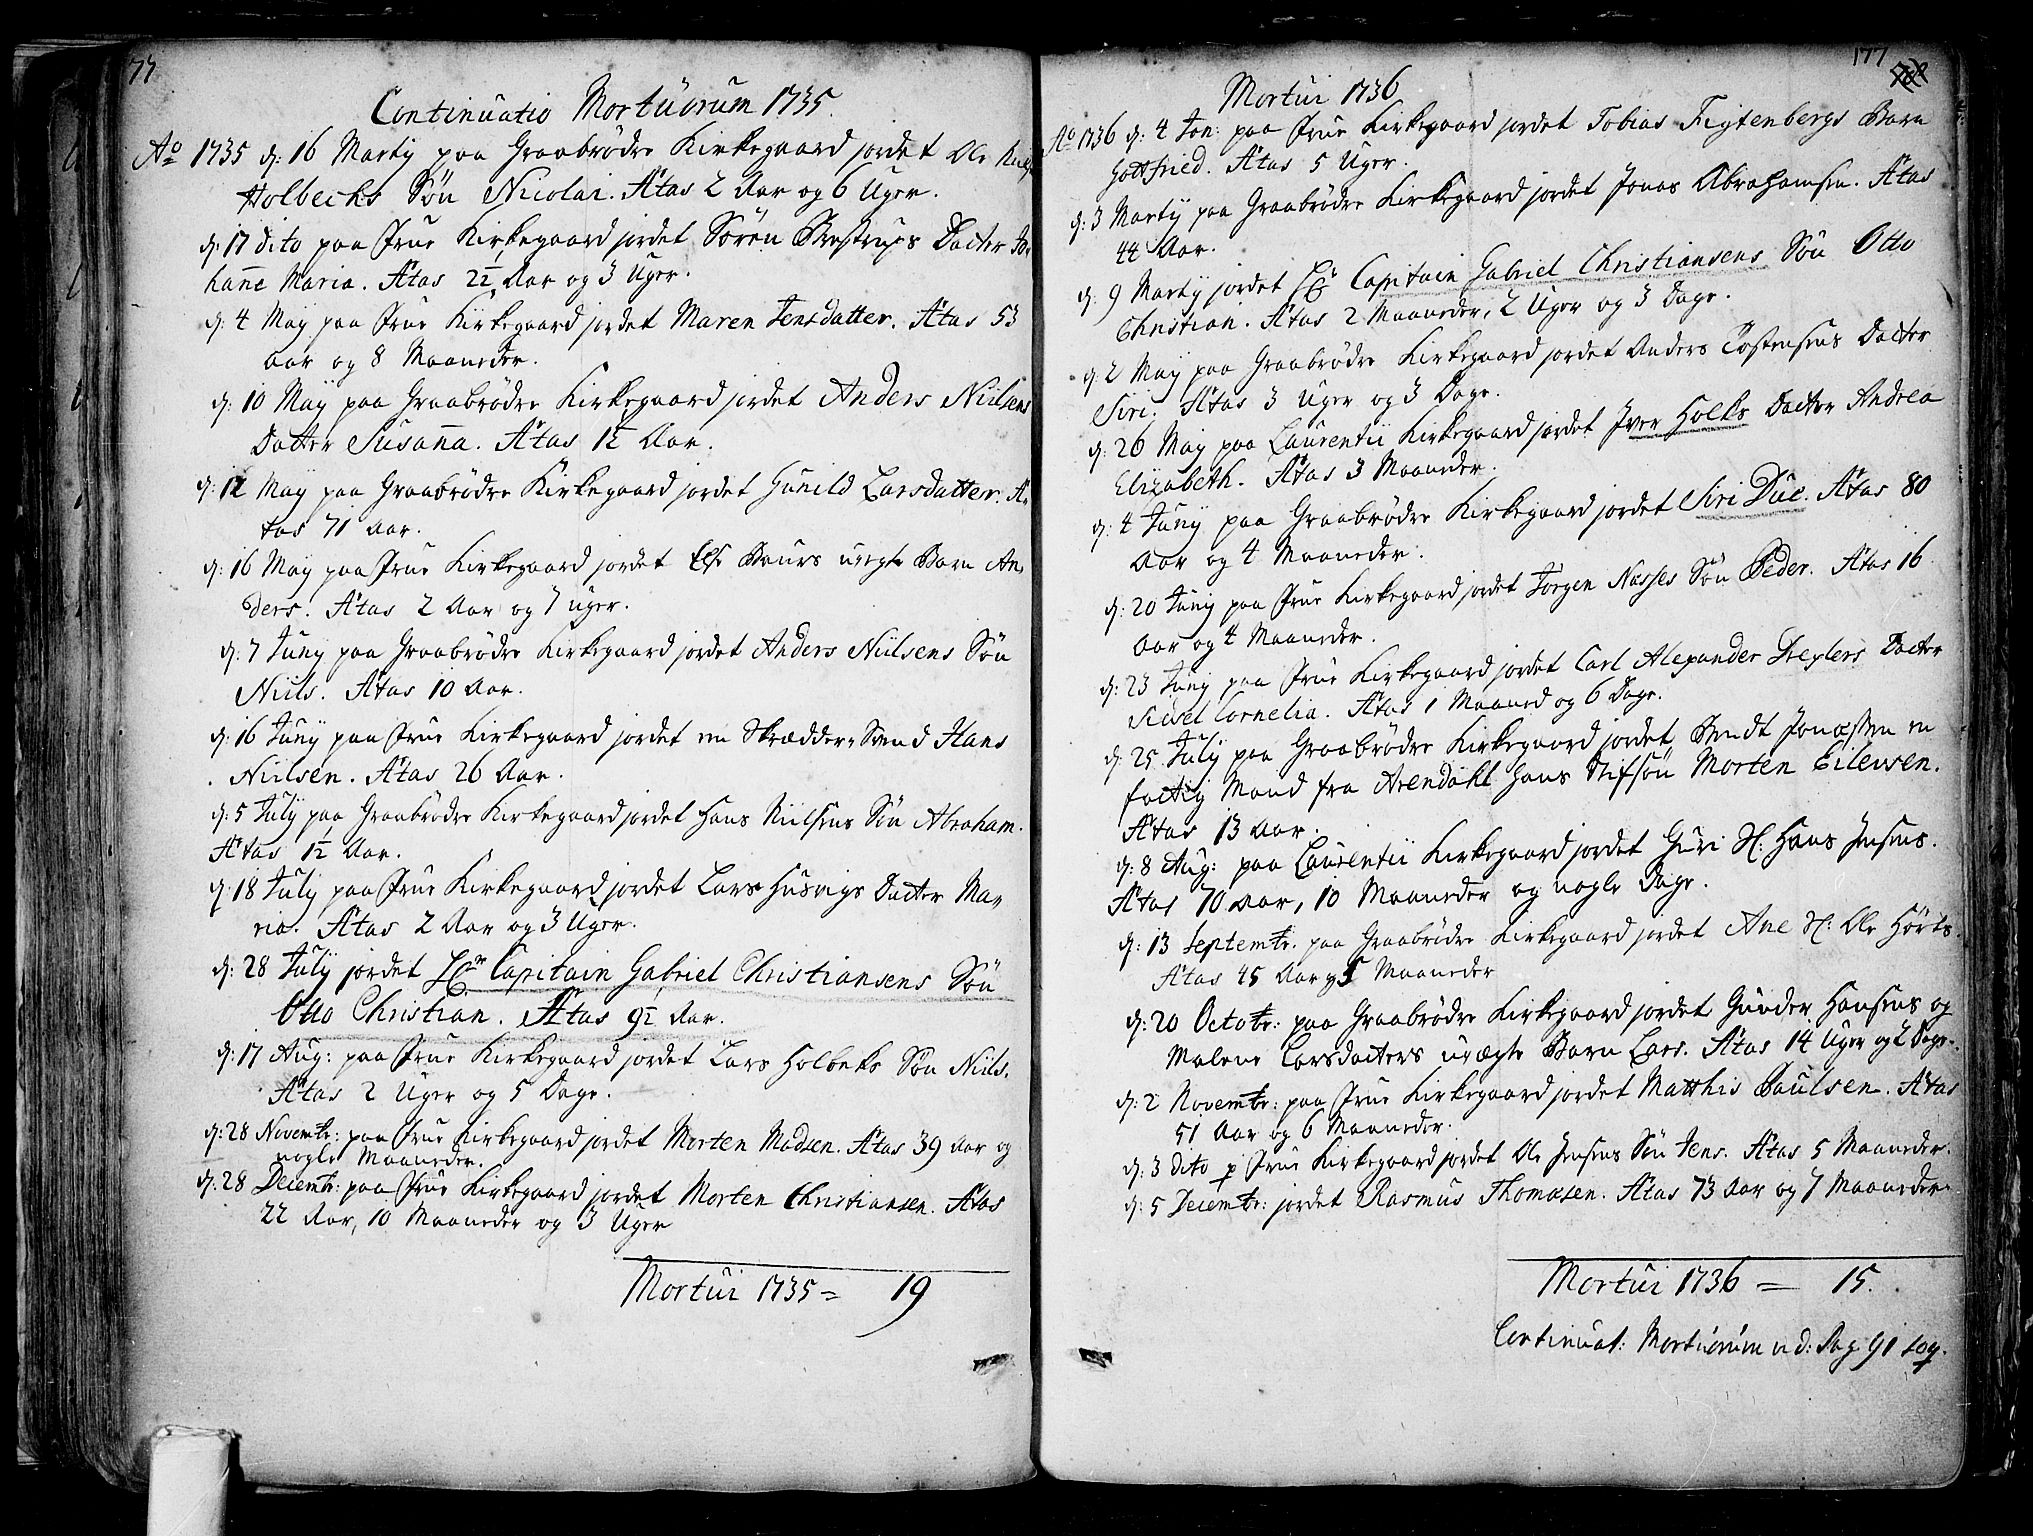 77
Continuatio Mortuorum 1735.
Ao 1735 d: 16 Martij paa Graabrødre Kirkegaard jordet Ole
Holbechs Søn Nicolai. Ætas 2 Aar og 6 Uger.
d: 17 dito paa Frue Kirkegaard jordet Søren Brestrups Dotter Jo-
hañe Maria. Ætas 2½ Aar og 3 Uger.
d: 4 May paa Frue Kirkegaard jordet Maren Jensdatter. Ætas 53
Aar og 8 Maaneder.
d: 10 Maÿ paa Graabrødre Kirkegaard jordet Anders Nielsens
Datter Susaña. Ætas 1½ Aar.
d: 12 May paa Graabrødre Kirkegaard jordet Gunild Larsdatter. Æ-
tas 71 Aar.
d: 16 Maÿ paa Frue Kirkegaard jordet Else Baurs uægte Barn An-
ders. Ætas 2 Aar og 7 uger.
d: 7 Junij paa Graabrødre Kirkegaard jordet Anders Niilsens Søn
Niils. Ætas 10 Aar.
d: 16 Junij paa Frue Kirkegaard jordet en Skrædder-Svend Hans
Niilsen. Ætas 26 Aar.
d: 5 Julij paa Graabrødre Kirkegaard jordet Hans Niilsens Søn Abraham.
Ætas 1½ Aar.
d: 18 Julij paa Frue Kirkegaard jordet Lars Husvigs Dotter Ma-
ria. Ætas 2 Aar og 3 Uger.
d: 28 Julij jordet Hr Capitain Gabriel Christiansens Søn
Otto Christian. Ætas 9½ Aar.
d: 17 Aug: paa Frue Kirkegaard jordet Lars Holbeks Søn Niils.
Ætas 2 Uger og 5 Dage.
d: 28 Novembr: paa Frue Kirkegaard jordet Morten Madsen. Ætas 39 Aar og
nogle Maaneder.
d: 28 Decembr: paa Frue Kirkegaard jordet Morten Christiansen. Ætas
22 Aar, 10 Maaneder og 3 Uger
Mortui 1735 = 19
177
Mortui 1736
Ao 1736 d: 4 Jan: paa Frue Kirkegaard jordet Tobias Figtenbergs Barn
Gottfried. Ætas 5 Uger.
d: 3 Martij paa Graabrødre Kirkegaard jordet Jonas Abrahamsen. Ætas
44 Aar.
d: 9 Martij jordet Hr Capitain Gabriel Christiansens Søn Otto
Christian. Ætas 2 Maaneder, 2 Uger og 3 Dage.
d: 2 Maij paa Graabrødre Kirkegaard jordet Anders Tostensens Dotter
Siri. Ætas 3 Uger og 3 Dage.
d: 26 Maij paa Laurentii Kirkegaard jordet Iver Holks Dotter Andrea
Elizabeth. Ætas 3 Maaneder.
d: 4 Junij paa Graabrødre Kirkegaard jordet Siri Due. Ætas 80
Aar og 4 Maaneder.
d: 20 Junij paa Frue Kirkegaard jordet Jørgen Nasses Søn Peder. Ætas 16
Aar og 4 Maaneder.
d: 23 Junij paa Frue Kirkegaard jordet Carl Alexander Drexlers Dotter
Sidsel Cornelia. Ætas 1 Maaned og 6 Dage.
d: 25 Julij paa Graabrødre Kirkegaard jordet Bendt Jonassen en
fattig Mand fra Arendahl hans Stifsøn Morten Eilevsen.
Ætas 13 Aar.
d: 8 Aug: paa Laurentii Kirkegaard jordet Guri Sl: Hans Jensens.
Ætas 70 Aar, 10 Maaneder og nogle Dage.
d: 13 Septembr. paa Graabrødre Kirkegaard jordet Ane Sl: Ole Hørbs.
Ætas 45 Aar og 5 Maaneder
d: 20 Octobr: paa Graabrødre Kirkegaard jordet Gunder Hansens og
Malene Larsdotters uægte Barn Lars. Ætas 14 Uger og 2 Dage.
d: 2 Novembr: paa Frue Kirkegaard jordet Matthis Paulsen. Ætas
51 Aar og 6 Maaneder.
d: 3 dito p Frue Kirkegaard jordet Ole Jensens Søn Jens. Ætas 5 Maaneder.
d: 5 Decembr: jordet Rasmus Thomasen. Ætas 73 Aar og 7 Maaneder.
Mortui 1736 = 15.
Continuat: Mortuorum v d: Pag 91 seq.